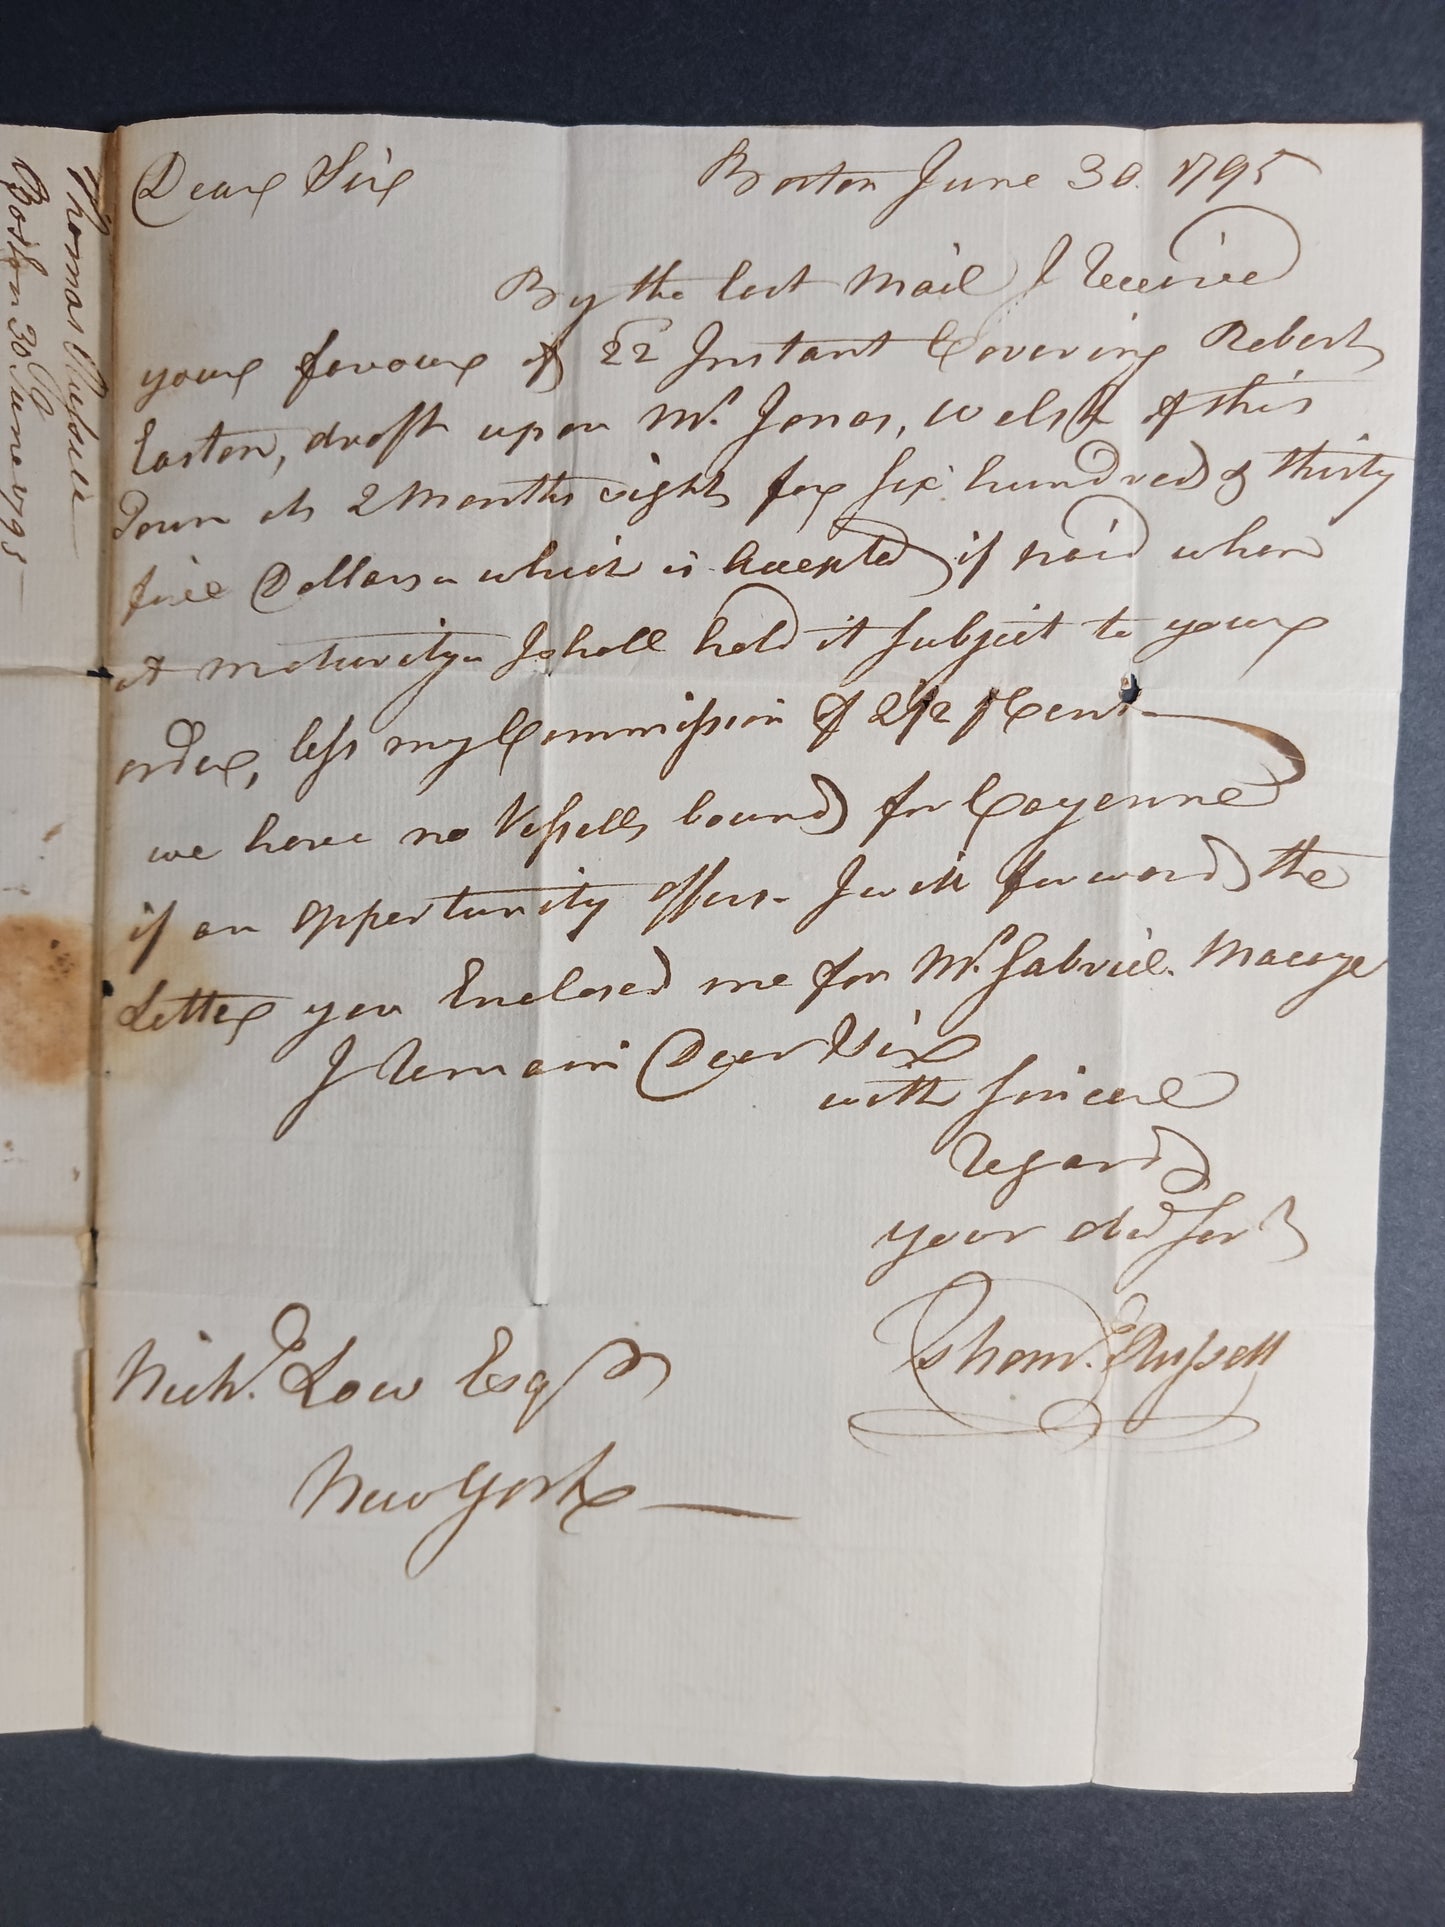 Dear Sir Boston June 30. 1795
By the last Mail I Receive
your favour of 22 Instant Covering Robert
Easton, draft upon Mr. Jonas, Welsh of this
Town at 2 Months sight for Six hundred & thirty
five Dollars which is Accepted, if paid when
at maturity I shall hold it Subject to your
order, less my Commission of 2 1/2 p Cent
we have no Vessells bound for Cayenne
if an opportunity offers I will forward the
Letter you Enclosed me for Mr. Gabriel.
I Remain Dear Sir
with Sincere
Regard
your obed Sert
Thoms. Russell
Nichs. Low Esqr
New York
Thomas Russell
Boston 30 June 1795